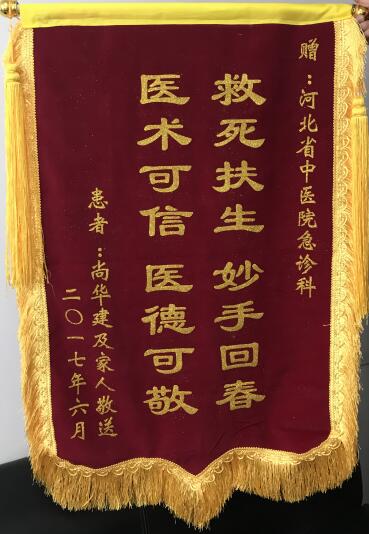 赠：河北省中医院急诊科
救死扶生 妙手回春
医术可信 医德可敬
患者：尚华建及家人敬送
二〇一七年六月